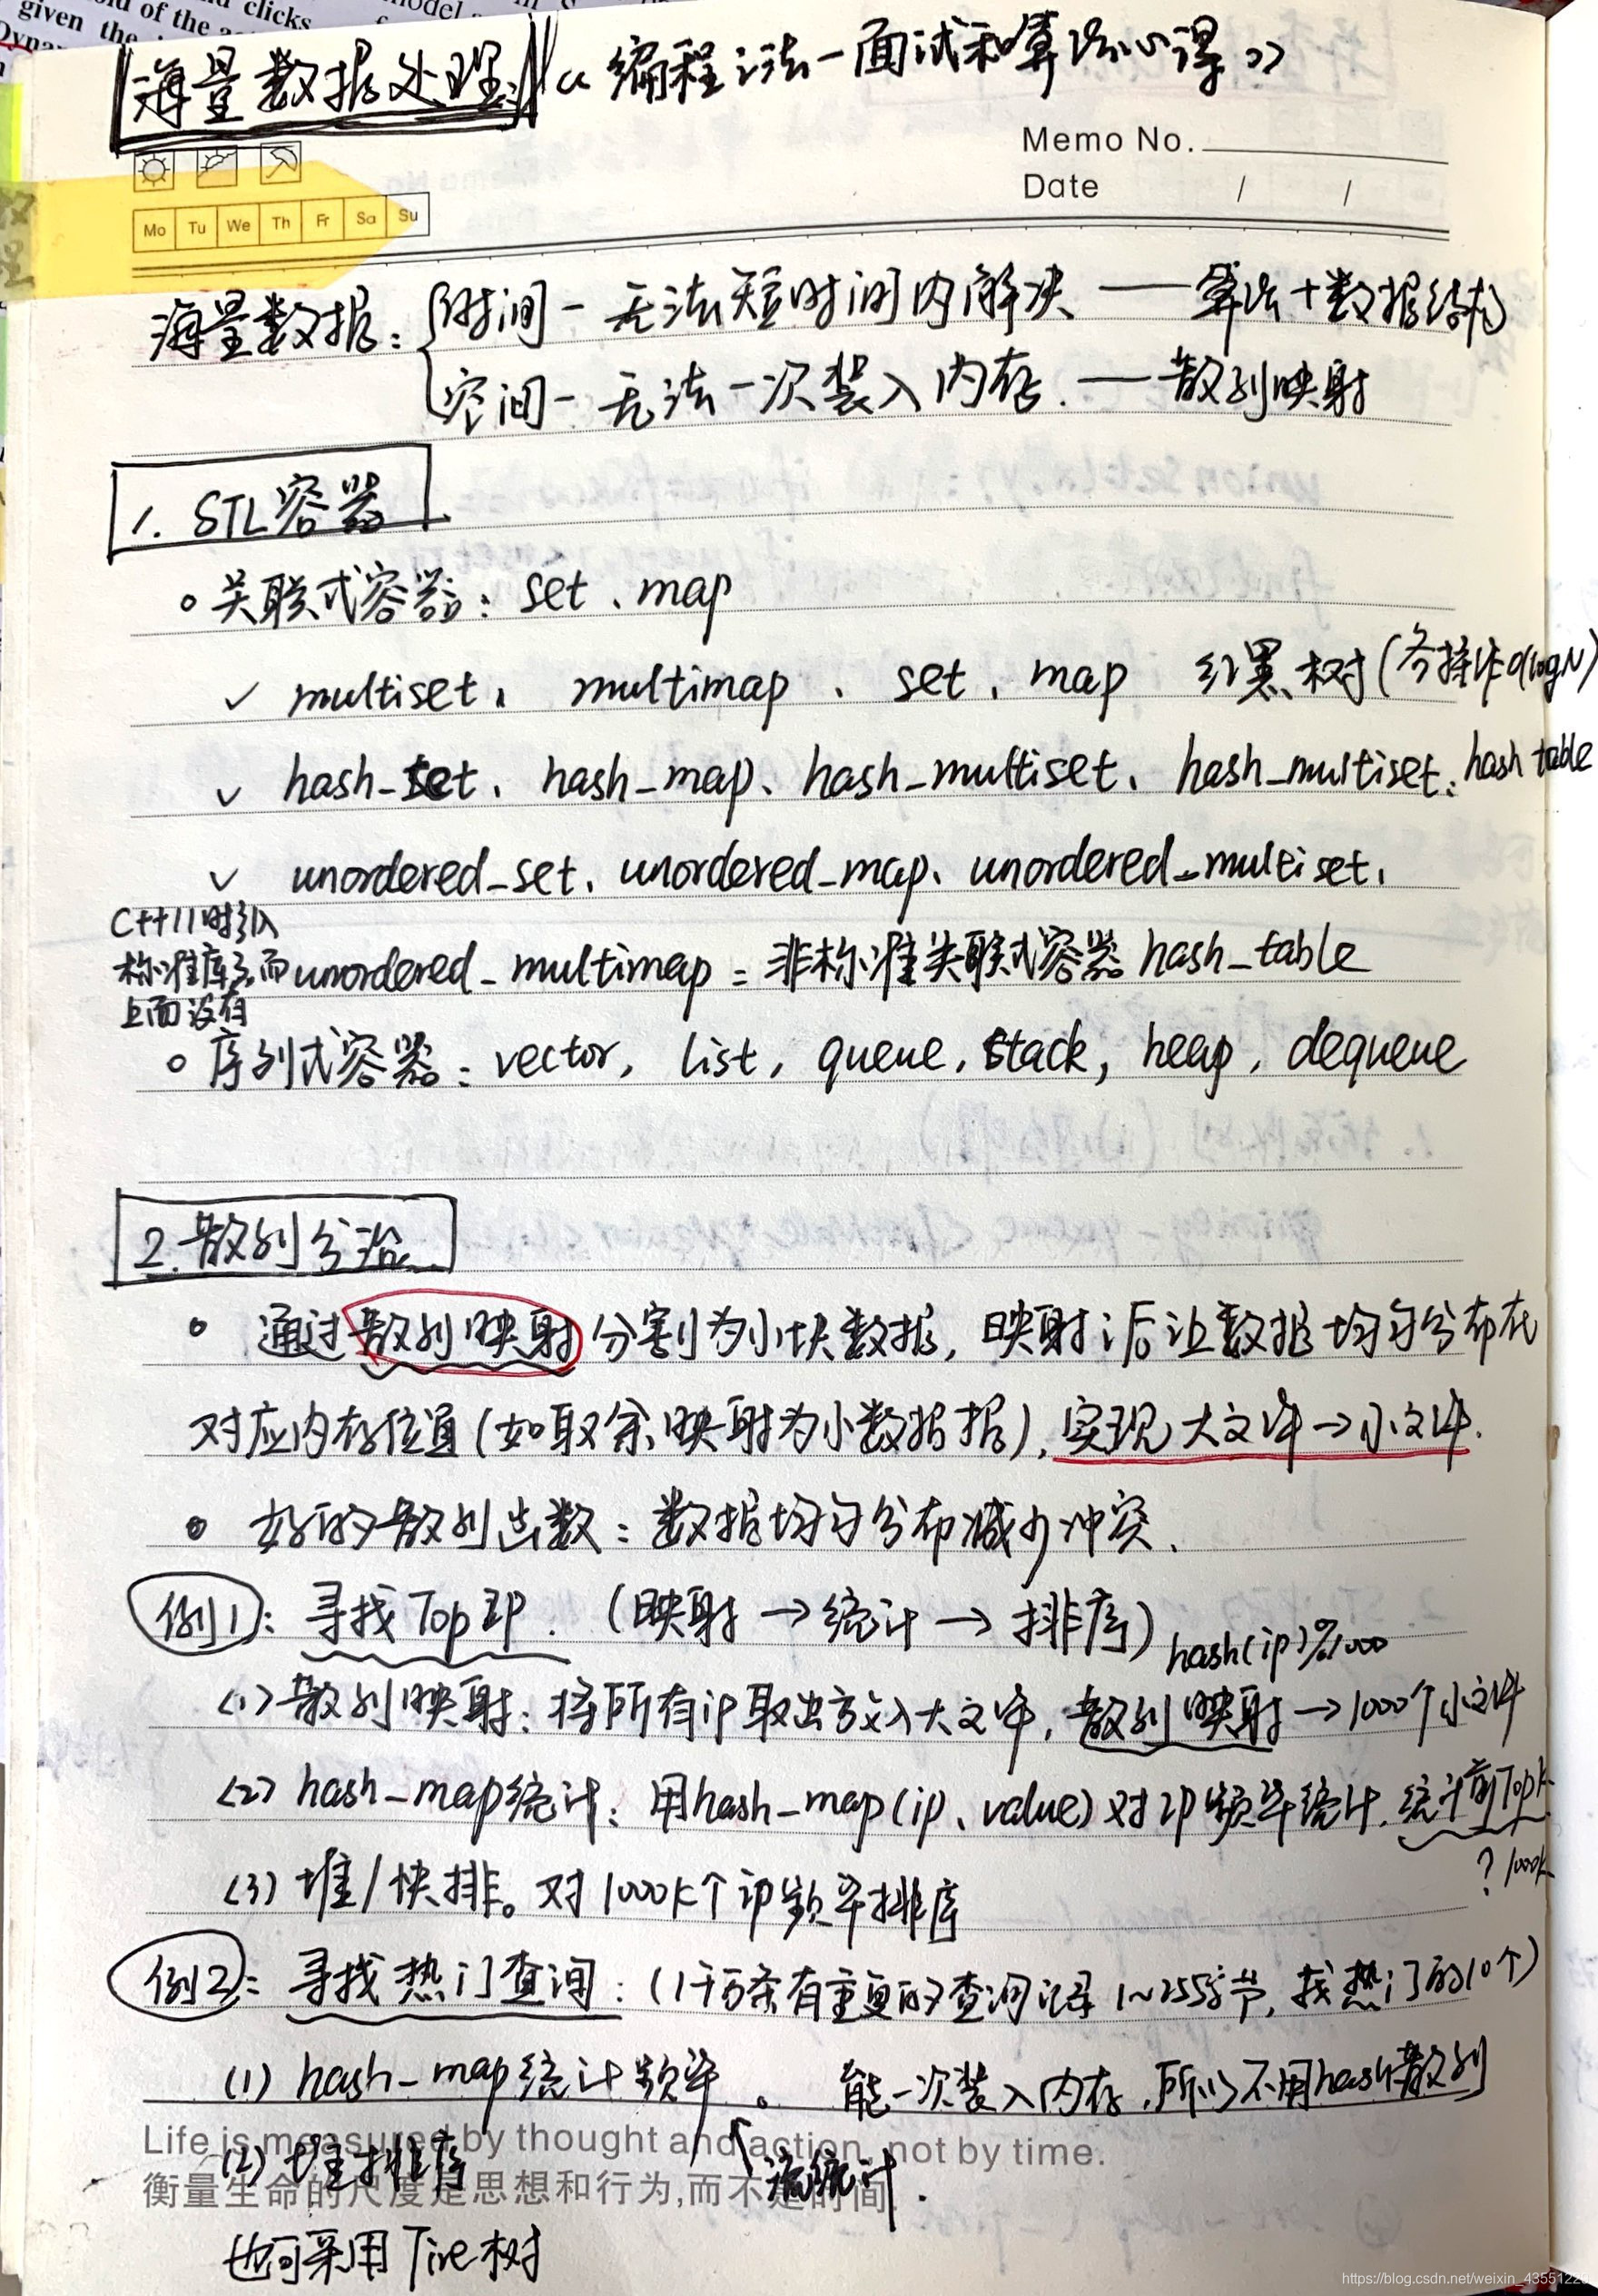 given the
clicks
海量数据处理 《编程之法-面试和算法心得》
Memo No.
Date / /
Mo Tu We Th Fr Sa Su
海量数据: 时间- 无法短时间内解决 —— 算法+数据结构
空间- 无法一次装入内存. —— 散列映射
1. STL容器
关联式容器: set、map
✓ multiset、 multimap 、 set、 map 红黑树(各操作O(logN)
✓ hash_set、hash_map、hash_multiset、hash_multiset: hash table
✓ unordered_set、unordered_map、unordered_multiset、
C++11时引入
标准库,而
上面没有
unordered_multimap = 非标准关联式容器 hash_table
序列式容器: vector, list, queue, stack, heap, dequeue
2.散列分治
通过散列映射分割为小块数据, 映射后让数据均匀分布在
对应内存位置(如取余映射为小数据), 实现大文件→小文件.
好的散列函数: 数据均匀分布减少冲突.
例1: 寻找Top IP. (映射→统计→排序) hash(ip)%1000
(1) 散列映射: 将所有ip取出放入大文件, 散列映射→1000个小文件
(2) hash_map统计: 用hash_map(ip、value)对IP频率统计. 统计前TopK
? 1000K
(3) 堆/快排。对1000K个ip频率排序
例2: 寻找热门查询: (1千万条有重复的查询记录 1~255字节, 找热门的10个)
(1) hash_map统计频率。 能一次装入内存,所以不用hash散列
Life is measured by thought and action, not by time.
(2) 堆排序
衡量生命的尺度是思想和行为,而不是时间.
统计.
也可采用Tire树
https://blog.csdn.net/weixin_43551229